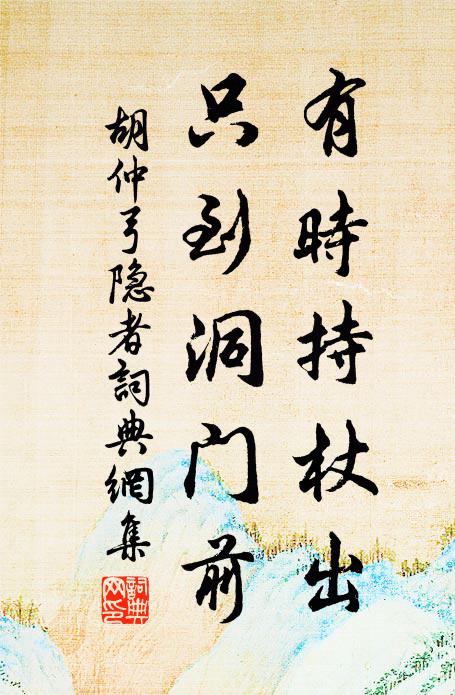 有時持杖出
只到洞门前
胡仲弓隐者詞典網集
詞典